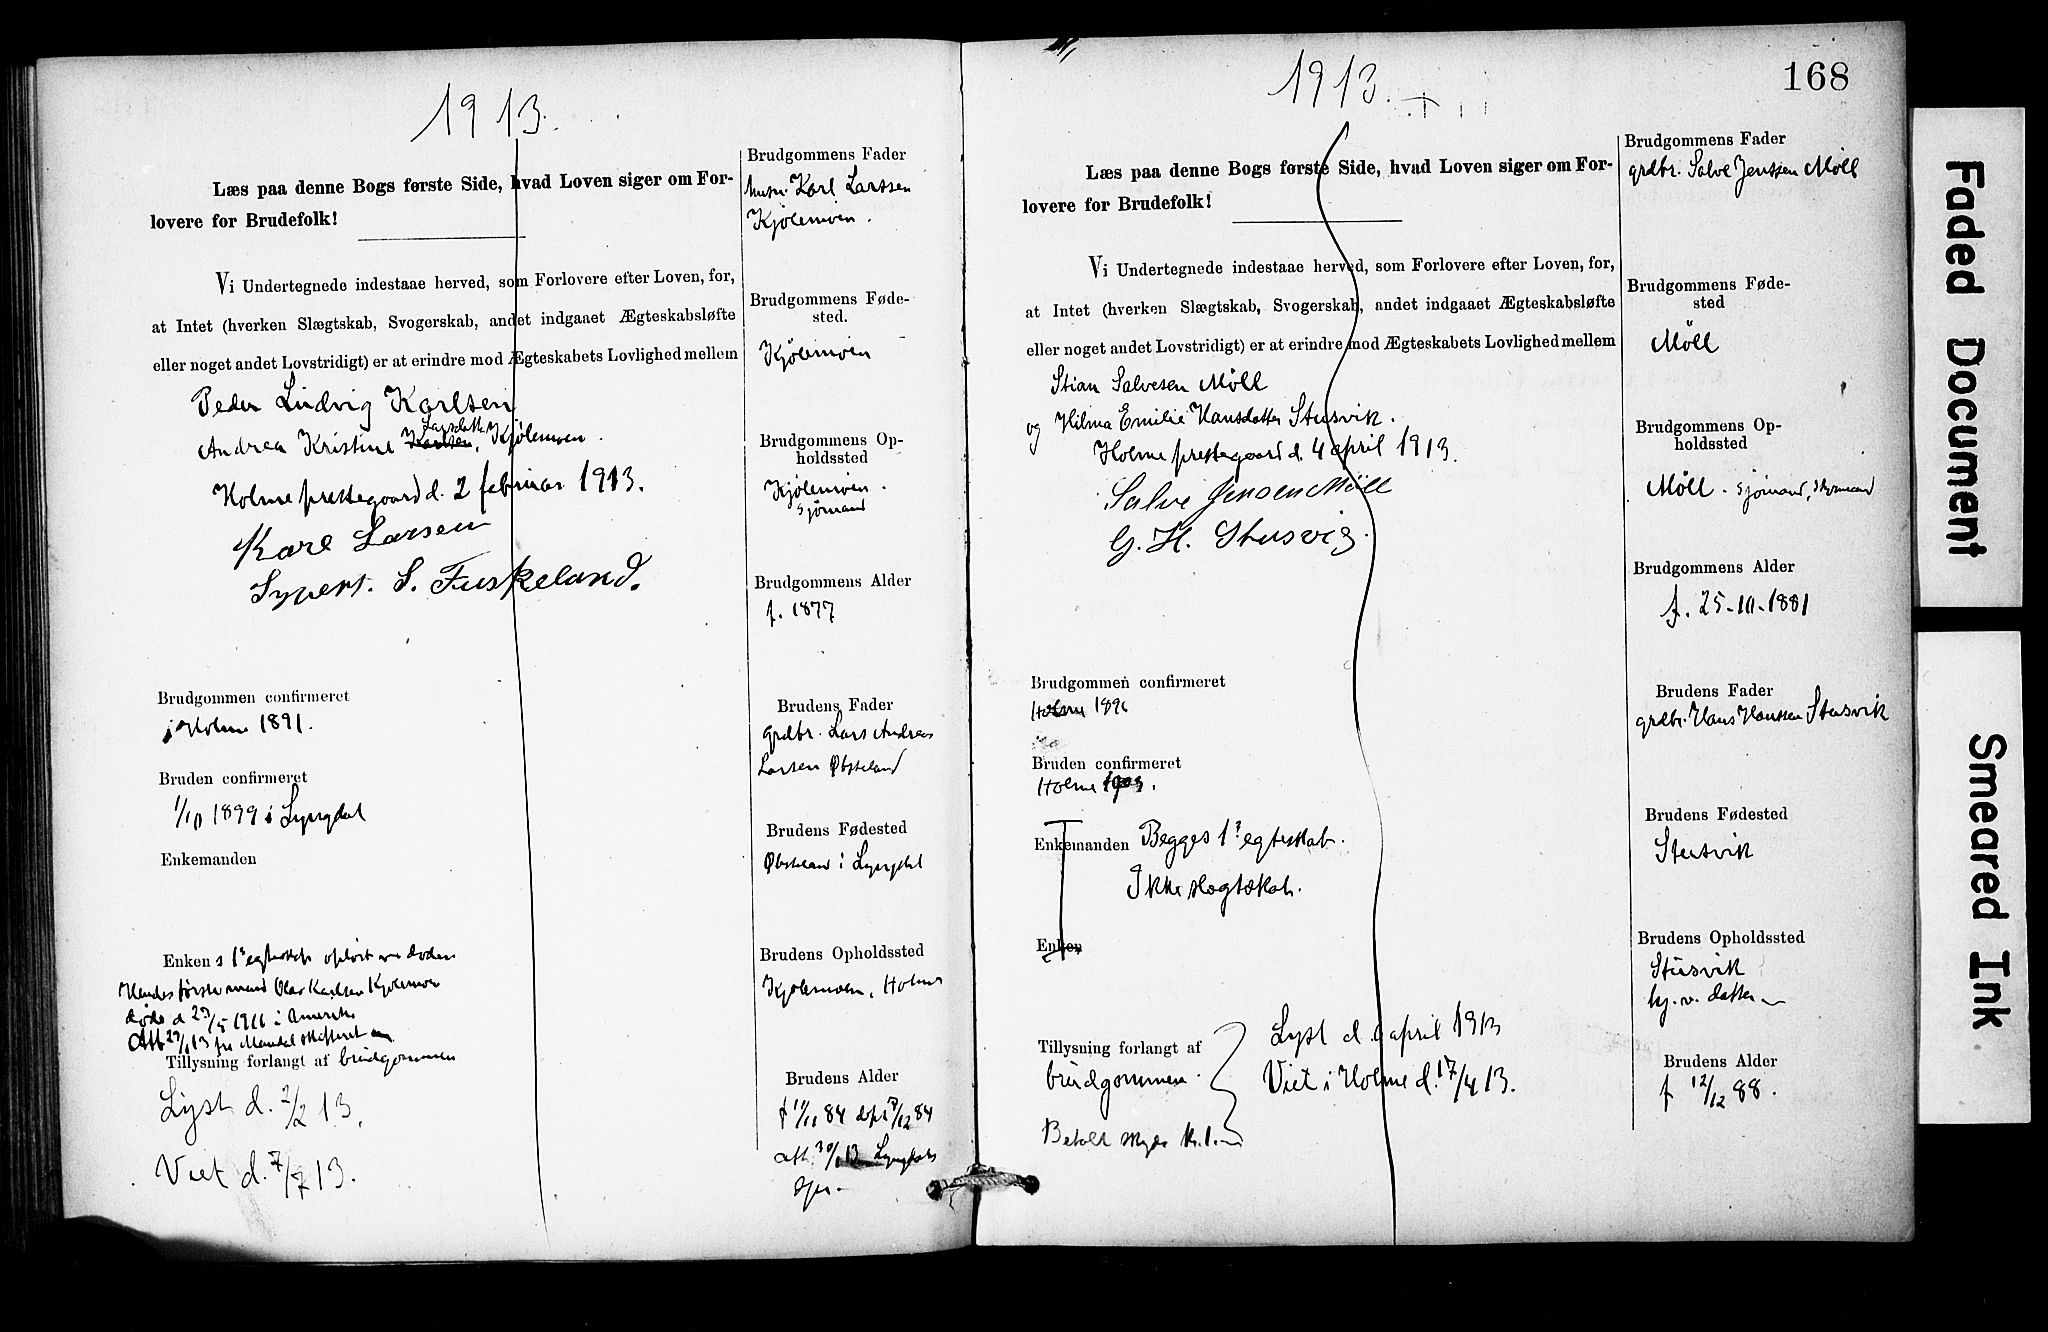 1913.
Læs paa denne Bogs første Side, hvad Loven siger om For-
lovere for Brudefolk!
Vi Undertegnede indestaae herved, som Forlovere efter Loven, for,
at Intet (hverken Slægtskab, Svogerskab, andet indgaaet Ægteskabsløfte
eller noget andet Lovstridigt) er at erindre mod Ægteskabets Lovlighed mellem
Peder Ludvig Karlsen
Larsdatter
Andrea Kristine Karlsen, Kjölemoen.
Holme prestegaard d. 2 februar 1913.
Karl Larsen
Sypert. S. Fuskeland.
Brudgommen confirmeret
i Holme 1891.
Bruden confirmeret
1/10 1899 i Lyngdal
Enkemanden
Enkens 1s egteskab opløst ved døden
Hendes første mand Olav Karlsen Kjølemoen
døde d 23/5 1911 i Amerika
Att 29/1 13 fra Mandal skifteret
Tillysning forlangt af brudgommen
Lyst d. 2/2 13.
Viet d. 7/7 13.
Brudgommens Fader
husm. Karl Larssen
Kjölemoen.
Brudgommens Føde-
sted.
Kjölemoen
Brudgommens Op-
holdssted
Kjölemoen.
sjømand
Brudgommens Alder
f. 1877
Brudens Fader
grdbr. Lars Andreas
Larsen Øbsteland
Brudens Fødested
Øbsteland i Lyngdal
Brudens Opholdssted
Kjølemoen, Holme
Brudens Alder
f 11/11 84 døpt 7/12 84
att. 30/1 13 Lyngdals
spr.
1913.
168
Læs paa denne Bogs første Side, hvad Loven siger om For-
lovere for Brudefolk!
Vi Undertegnede indestaae herved, som Forlovere efter Loven, for,
at Intet (hverken Slægtskab, Svogerskab, andet indgaaet Ægteskabsløfte
eller noget andet Lovstridigt) er at erindre mod Ægteskabets Lovlighed mellem
Stian Salvesen Möll
og Hilma Emilie Hansdatter Stusvik.
Holme prestegaard d. 4 april 1913.
Salve Jensen Möll
G. H. Stusvig.
Brudgommen confirmeret
Holme 1896
Bruden confirmeret
Holme 1903.
Enkemanden Begges 1s egteskab.
Ikke slegtskab.
Enken
Tillysning forlangt af
brudgommen.
Lyst d. 6 april 1913
Viet i Holme d. 17/4 13.
Betalt kr. 1.
Brudgommens Fader
grdbr. Salve Jenssen Möll
Brudgommens Føde-
sted
Möll
Brudgommens Op-
holdssted
Möll. sjömand, styrmand
Brudgommens Alder
f. 25-10-1881
Brudens Fader
grdbr. Hans Hanssen Stusvik
Brudens Fødested
Stusvik
Brudens Opholdssted
Stusvik
hj. v. datter
Brudens Alder
f 12/12 88.
Faded Document
Smeared Ink